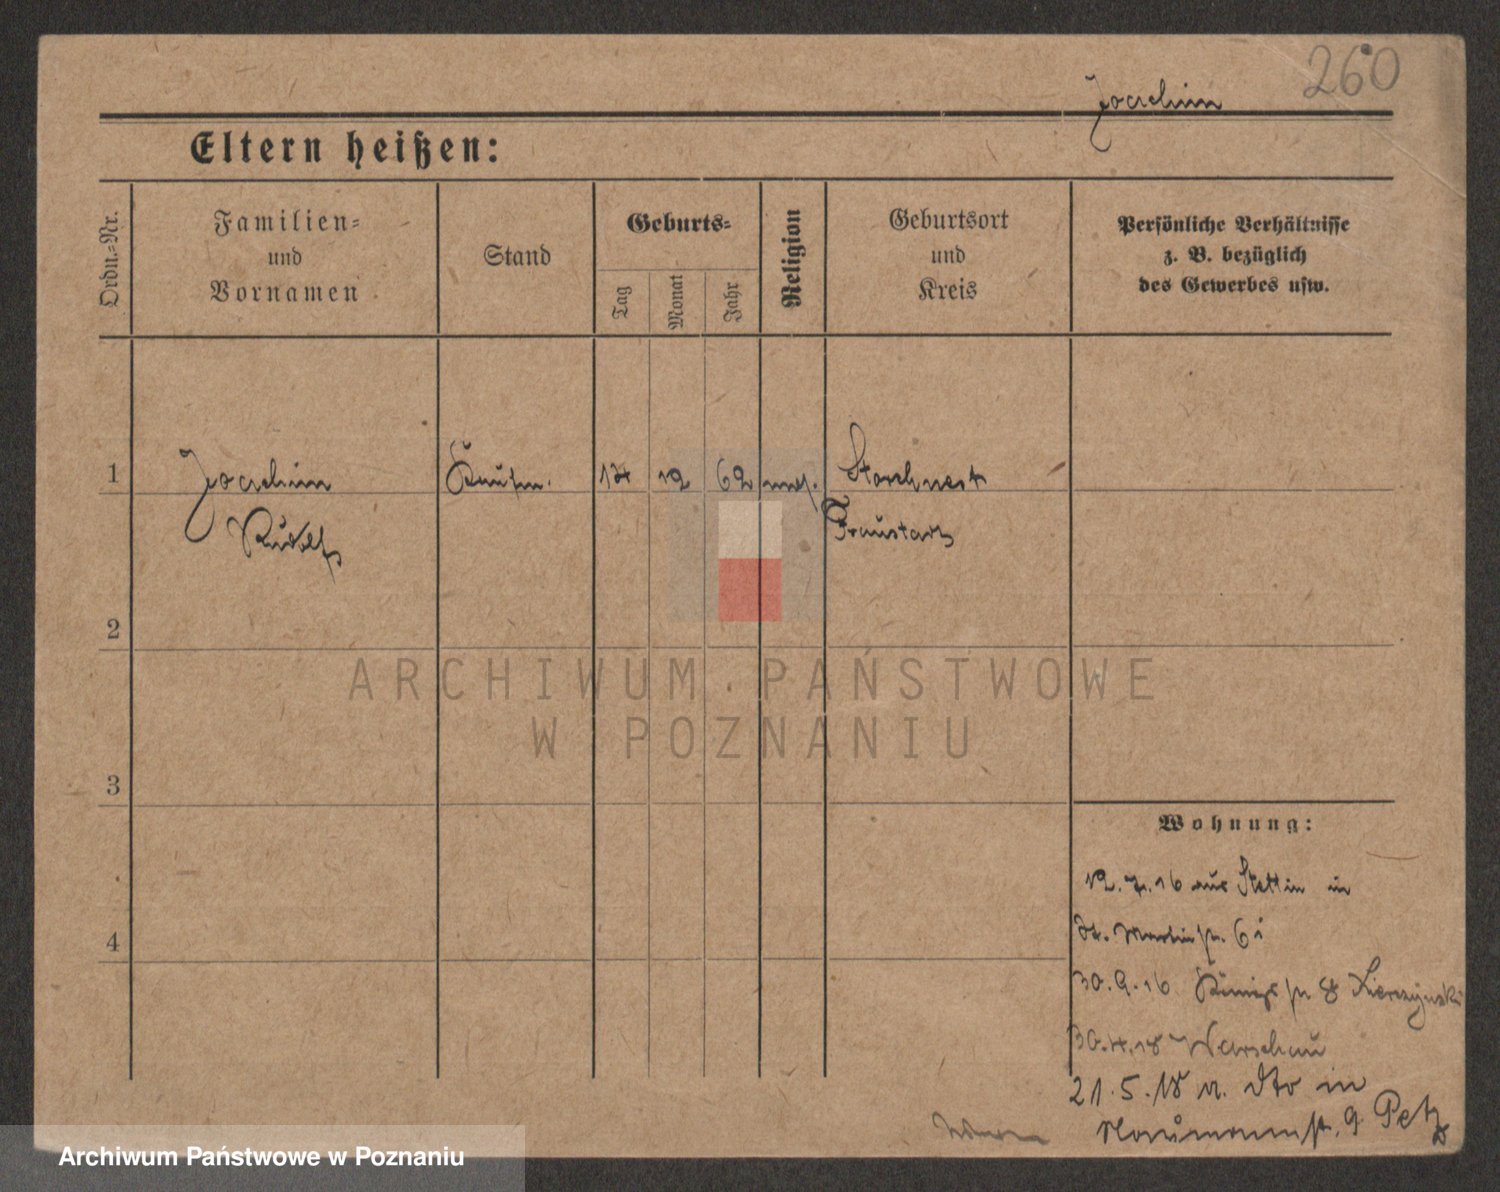 260
Joachim
Eltern heißen:
Ordn.-Nr.
Familien-
und
Vornamen
Stand
Geburts-
Tag
Monat
Jahr
Religion
Geburtsort
und
Kreis
Persönliche Verhältnisse
z. B. bezüglich
des Gewerbes usw.
1
Joachim
Rudolf
Kaufm.
14
12
62
mos.
Storchnest
Fraustadt
2
ARCHIWUM PAŃSTWOWE
W POZNANIU
3
4
Wohnung:
12.7.16 aus Stettin in
St. Martinstr. 61
30.9.16 Königstr 8
30.4.18 Warschau
21.5.18 v. dto in
Naumannstr. 9 Petz
Archiwum Państwowe w Poznaniu